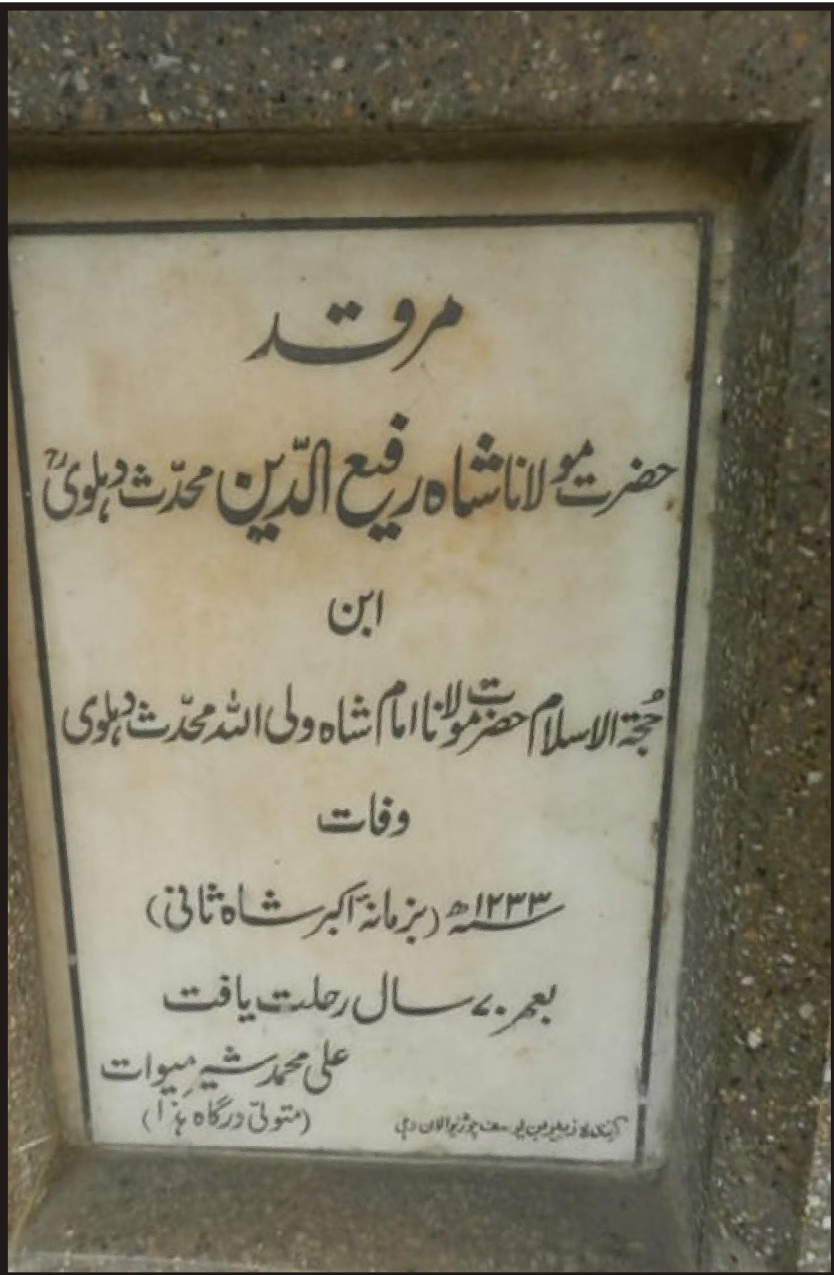 مرقد
حضرت مولانا شاہ رفیع الدّین محدّث دہلویؒ
ابن
حُجۃ الاسلام حضرت مولانا امام شاہ ولی اللہ محدّث دہلوی
وفات
سنہ ۱۲۳۳ھ (بزمانہ اکبر شاہ ثانی)
بعمر ۷۰ سال رحلت یافت
علی محمد شیرِ میوات
(متولّی درگاہ ہٰذا)
یوسف چوڑیوالان دہلی